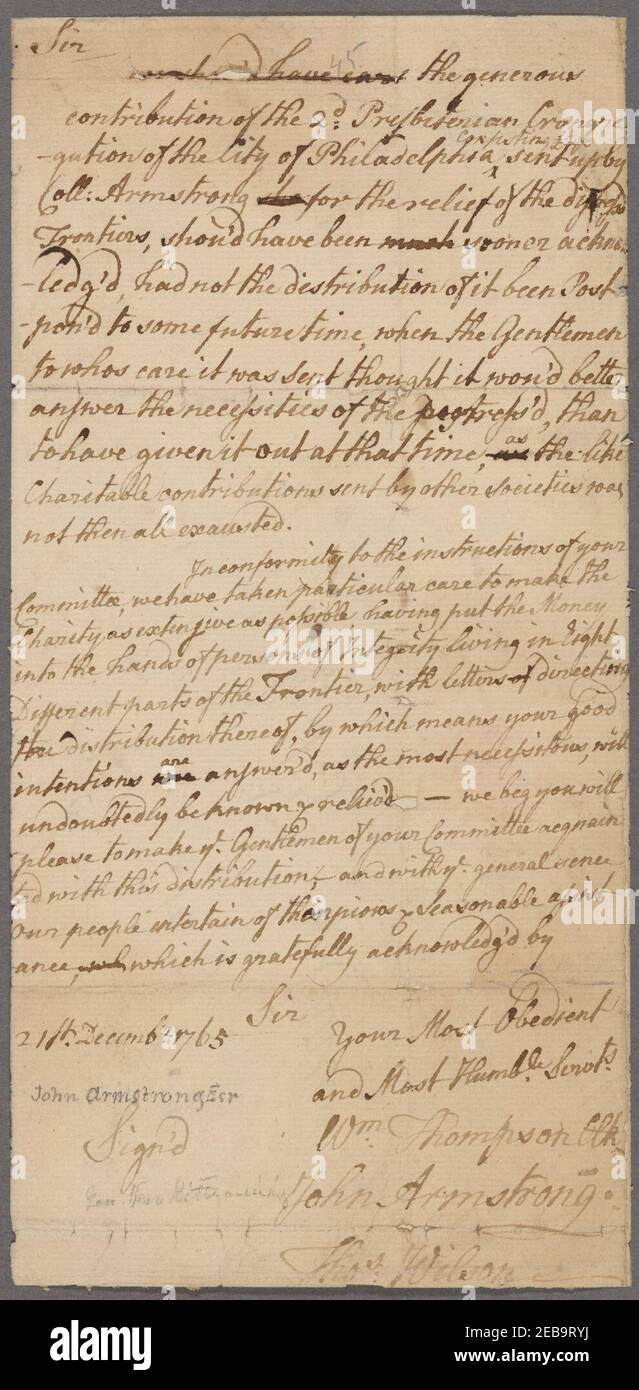 Sir
45
shou'd have the generous
contribution of the 2d. Presbiterian Congre
-gation of the City of Philadelphia sent up by
Coll: Armstrong for the relief of the
Frontiers, shou'd have been much sooner ackno
-ledg'd, had not the distribution of it been Post-
-pon'd to some future time, when the Gentlemen
to whos care it was sent thought it wou'd better
answer the necessities of the , than
to have given it out at that time, as the like
Charitable contributions sent by other Societies was
not then all exausted.
In conformity to the instructions of your
Committee, we have taken particular care to make the
Charity as extensive as possible having put the Money
into the hands of persons of Integrity living in Eight
Different parts of the Frontier, with letters of directing
the distribution thereof, by which means your good
intentions are answer'd, as the most necessitows, will
undoubtedly be known & reliev'd — we beg you will
please to make ye. Gentlemen of your Committee aequain
ted with this distribution, and with ye. general sence
our people intertain of the pious & seasonable assist
ance, which is gratefully acknowledg'd by
Sir
21st. Decembr. 1765
your Most Obedient
and Most Humble. Servts.
John Armstrong Esr
Sign'd
Wm. Thompson Clk
John Armstrong
Thos. Wilson
alamy
Image ID: 2EB9RYJ
www.alamy.com